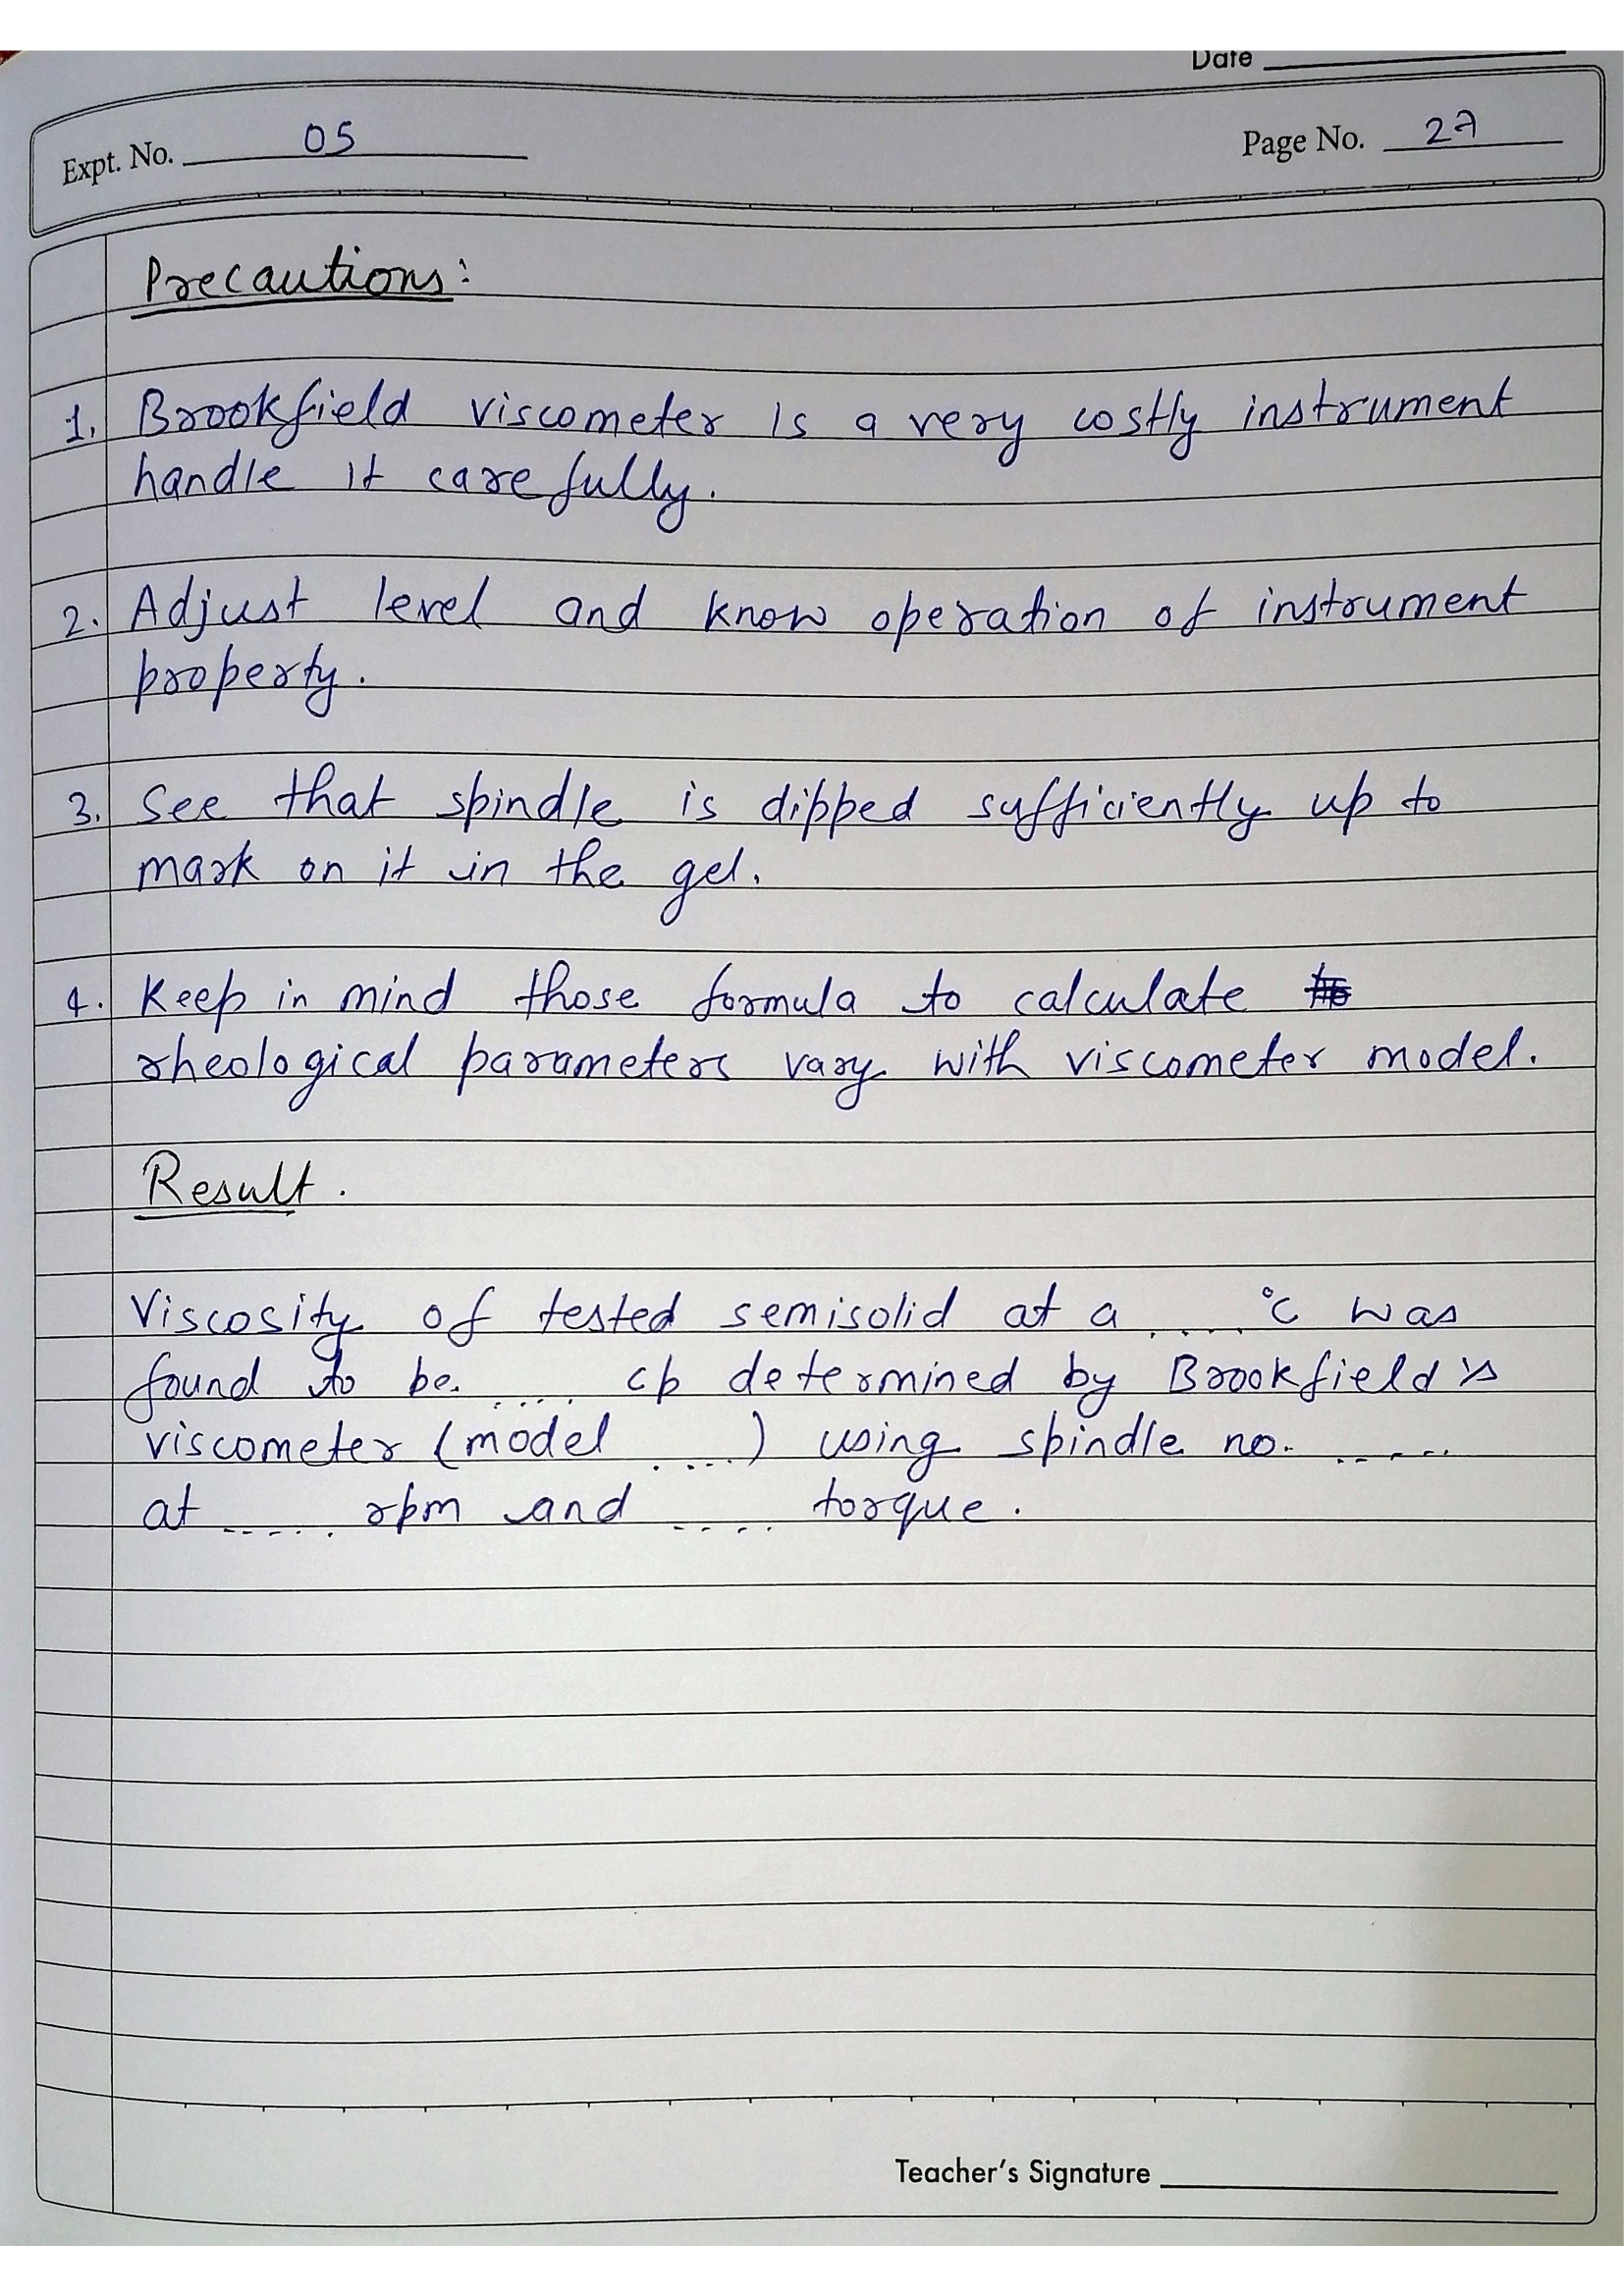 Date
Expt. No. 05
Page No. 27
Precautions:
1. Brookfield viscometer is a very costly instrument
handle it carefully.
2. Adjust level and know operation of instrument
property.
3. See that spindle is dipped sufficiently up to
mark on it in the gel.
4. Keep in mind those formula to calculate
rheological parameters vary with viscometer model.
Result.
Viscosity of tested semisolid at a ..... °c was
found to be ..... cp determined by Brookfield's
viscometer (model .....) using spindle no. .....
at ..... rpm and ..... torque.
Teacher's Signature